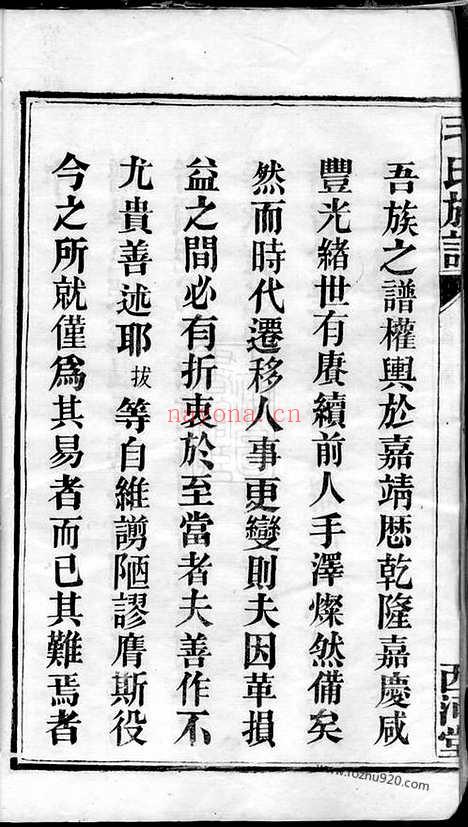 毛氏族譜
吾族之譜權輿於嘉靖歷乾隆嘉慶咸
豐光緒世有賡續前人手澤燦然備矣
然而時代遷移人事更變則夫因革損
益之間必有折衷於至當者夫善作不
尤貴善述耶拔等自維謭陋謬膺斯役
今之所就僅為其易者而已其難焉者
西河堂
nayona.cn
www.rozhu920.com